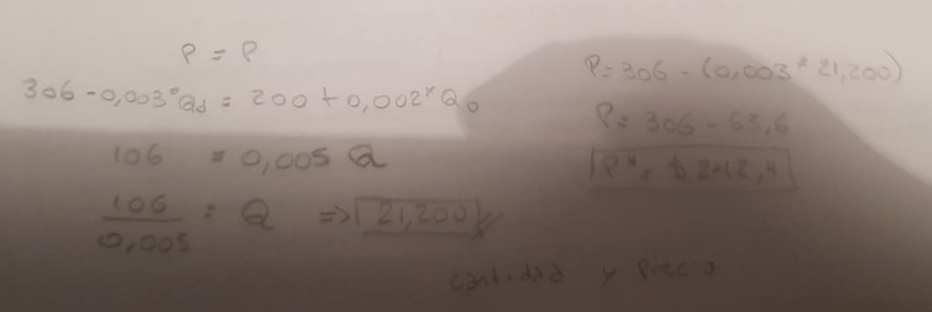 P = P
306 - 0,003*Qd = 200 + 0,002*Qo
106 = 0,005 Q
106
0,005
= Q => 21,200
P= 306 - (0,003*21,200)
P= 306 - 63,6
P* = $ 242,4
cantidad y precio